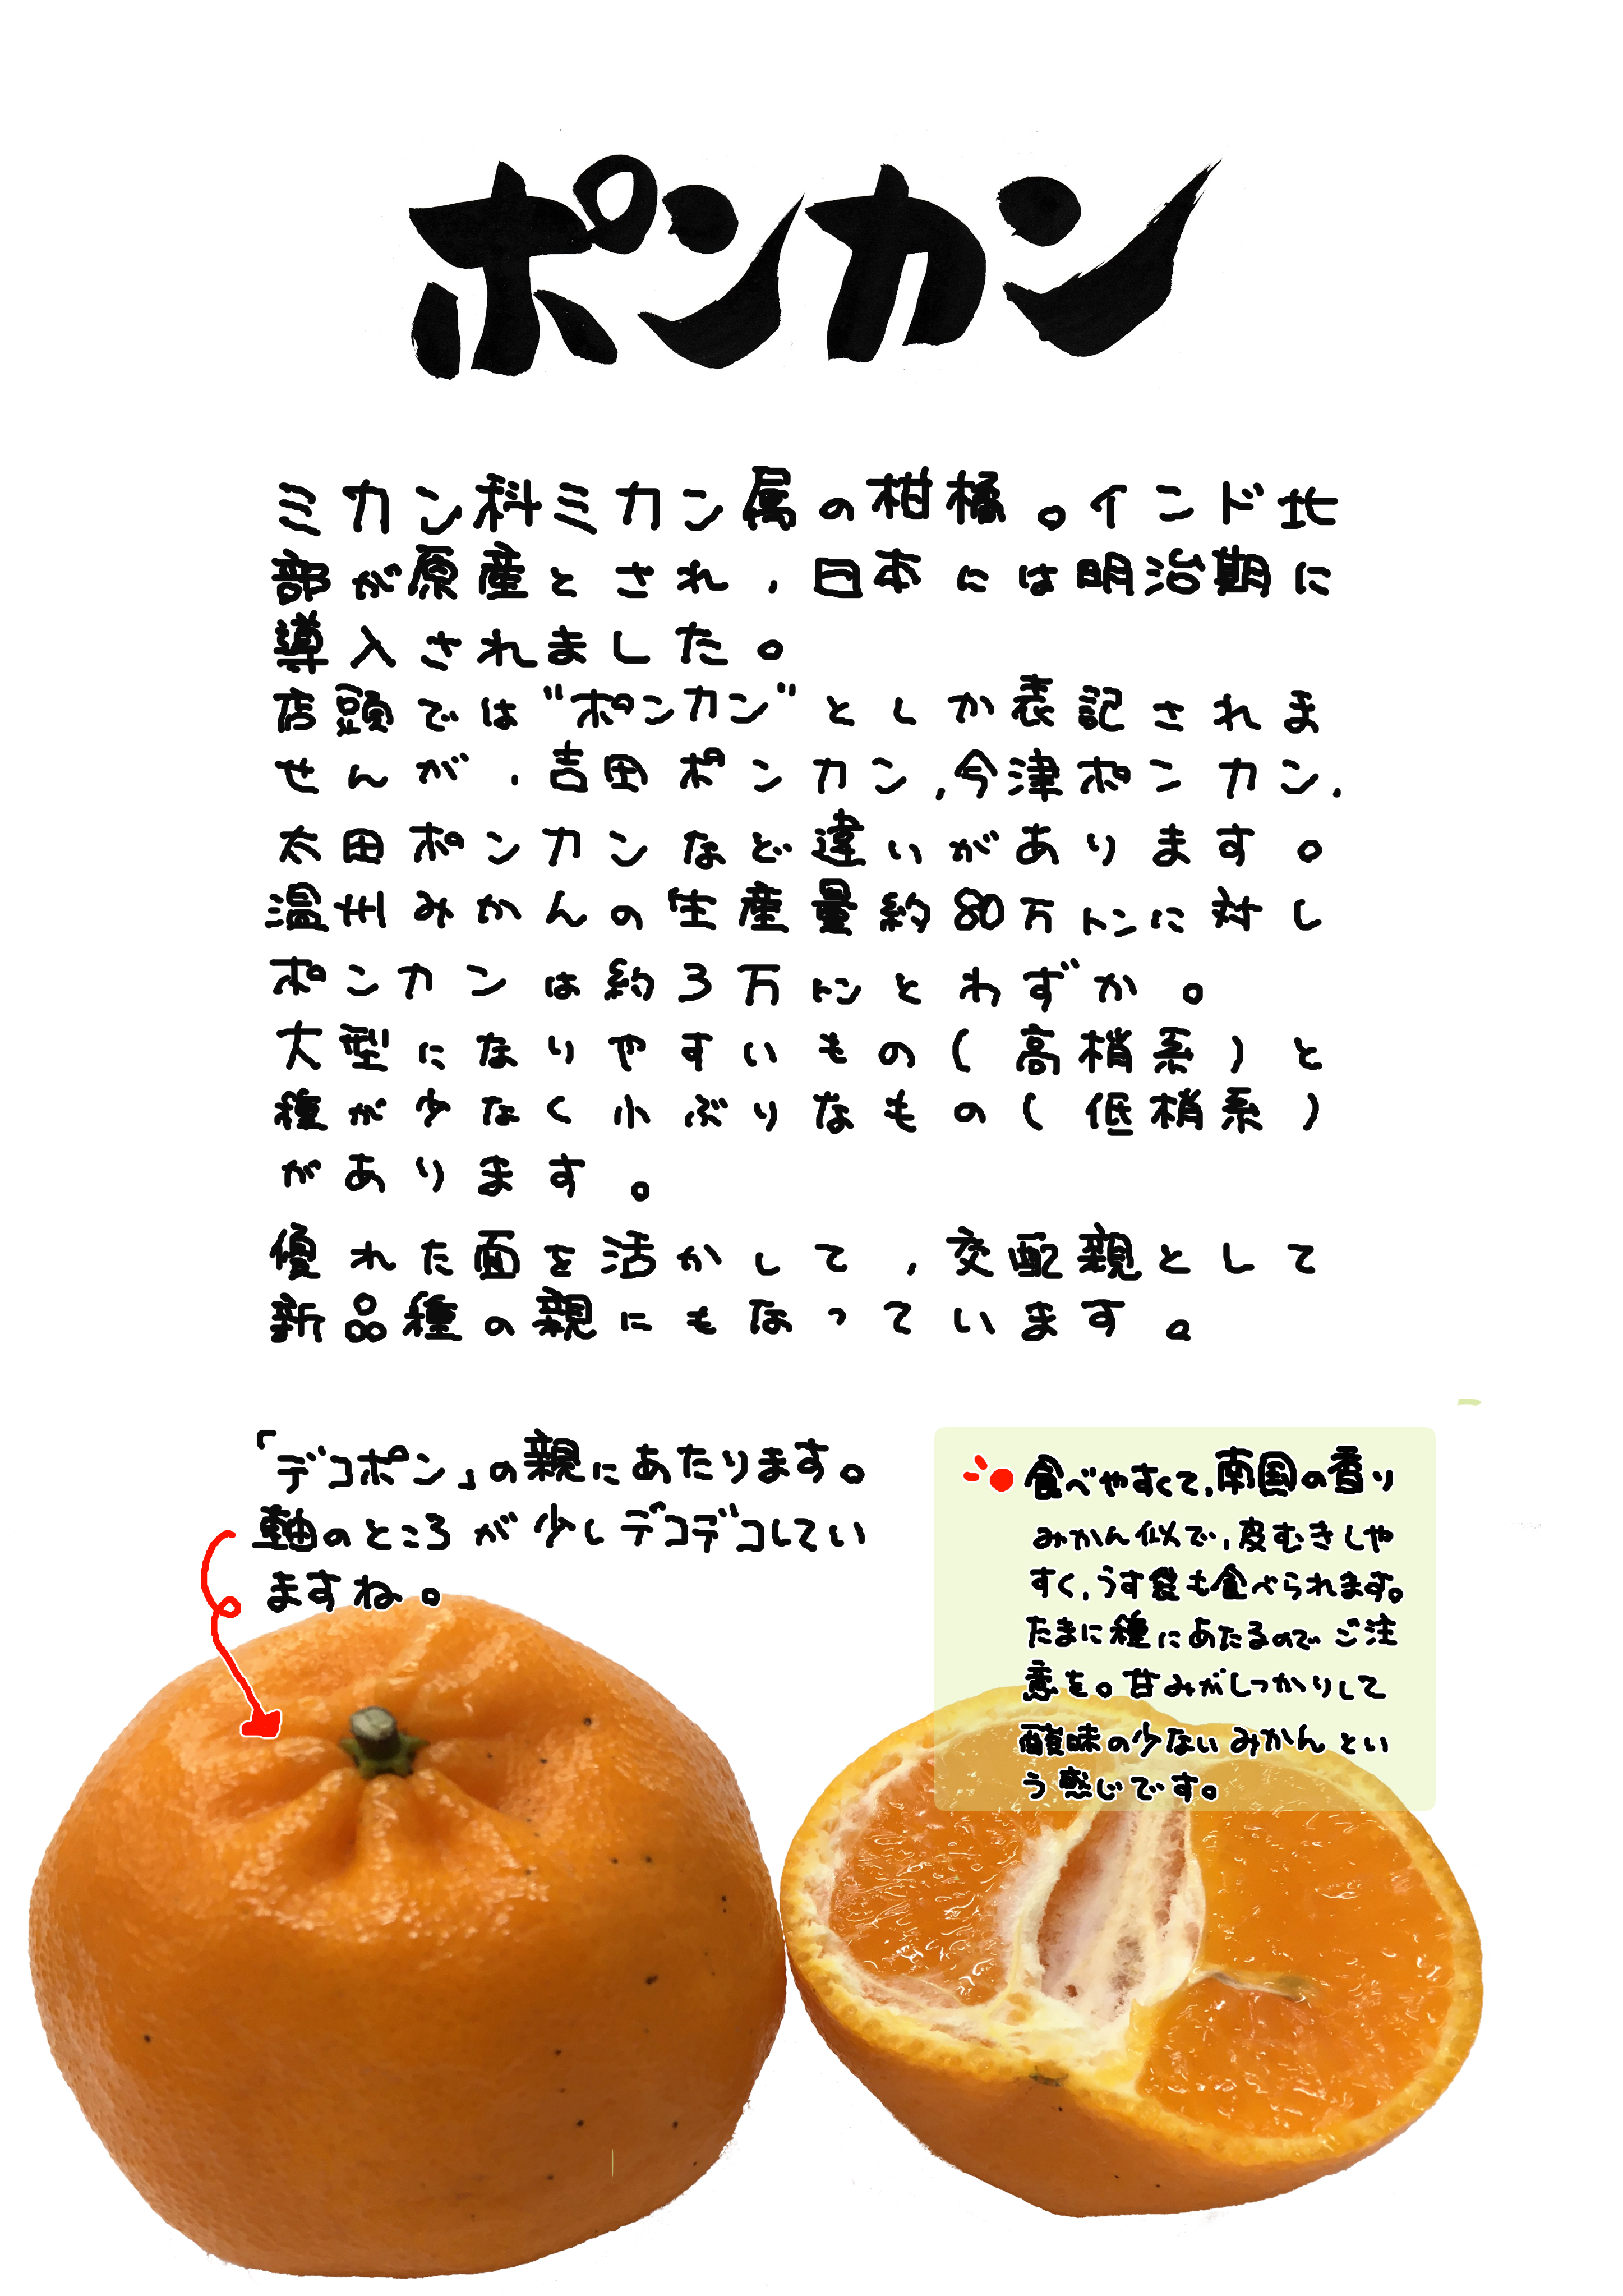 ポンカン
ミカン科ミカン属の柑橘。インド北
部が原産とされ、日本には明治期に
導入されました。
店頭では"ポンカン"としか表記されま
せんが、吉田ポンカン、今津ポンカン、
太田ポンカンなど違いがあります。
温州みかんの生産量約80万トンに対し
ポンカンは約3万トンとわずか。
大型になりやすいもの(高梢系)と
種が少なく小ぶりなもの(低梢系)
があります。
優れた面を活かして、交配親として
新品種の親にもなっています。
「デコポン」の親にあたります。
軸のところが少しデコデコしてい
ますね。
食べやすくて、南国の香り
みかん似で、皮むきしや
すく、うす袋も食べられます。
たまに種にあたるのでご注
意を。甘みがしっかりして
酸味の少ないみかんとい
う感じです。